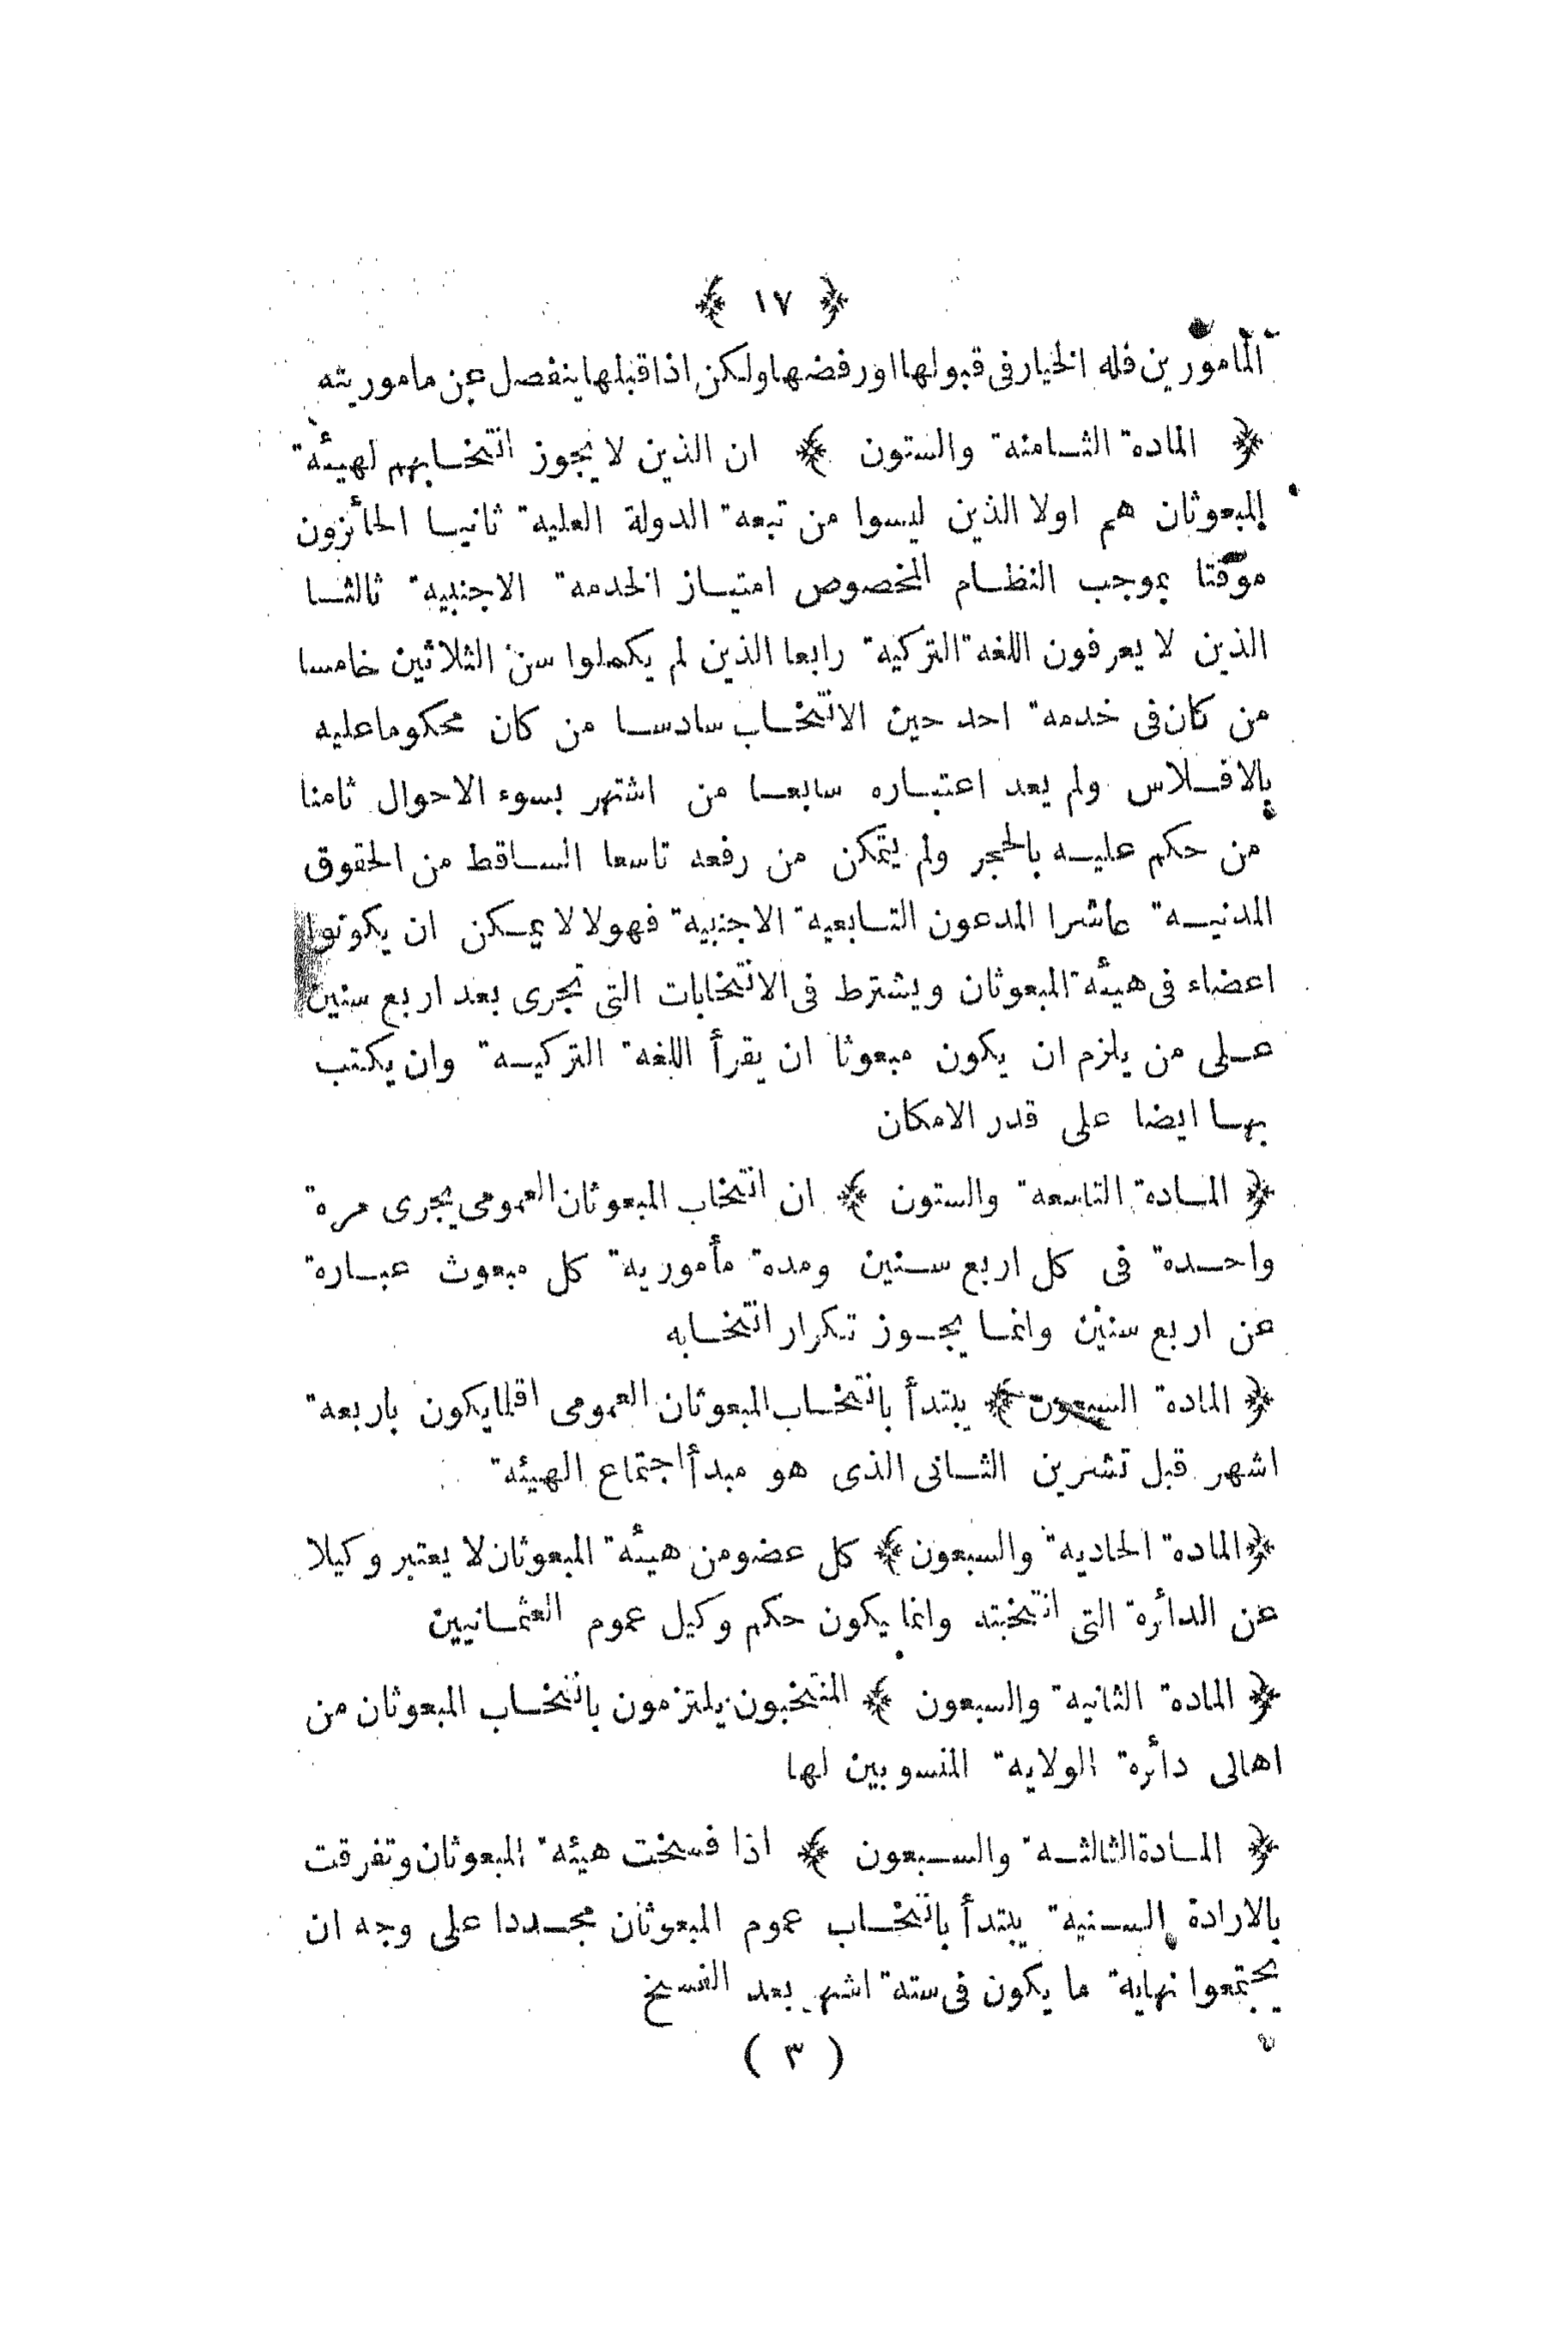 ﴿ ١٧ ﴾
المأمورين فله الخيار فى قبولها اورفضها ولكن اذا قبلها ينفصل عن ماموريته
﴿ المادة الثامنة والستون ﴾ ان الذين لا يجوز انتخابهم لهيئة
المبعوثان هم اولا الذين ليسوا من تبعة الدولة العلية ثانيا الحائزون
موقتا بموجب النظام المخصوص امتياز الخدمة الاجنبية ثالثا
الذين لا يعرفون اللغة التركية رابعا الذين لم يكملوا سن الثلاثين خامسا
من كان فى خدمة احد حين الانتخاب سادسا من كان محكوما عليه
بالافلاس ولم يعد اعتباره سابعا من اشتهر بسوء الاحوال ثامنا
من حكم عليه بالحجر ولم يتمكن من رفعه تاسعا الساقط من الحقوق
المدنية عاشرا المدعون التابعية الاجنبية فهولا لا يمكن ان يكونوا
اعضاء فى هيئة المبعوثان ويشترط فى الانتخابات التى تجرى بعد اربع سنين
على من يلزم ان يكون مبعوثا ان يقرأ اللغة التركية وان يكتب
بها ايضا على قدر الامكان
﴿ المادة التاسعة والستون ﴾ ان انتخاب المبعوثان العمومى يجرى مرة
واحدة فى كل اربع سنين ومدة مأمورية كل مبعوث عبارة
عن اربع سنين وانما يجوز تكرار انتخابه
﴿ المادة السبعون ﴾ يبتدأ بانتخاب المبعوثان العمومى اقلما يكون باربعة
اشهر قبل تشرين الثانى الذى هو مبدأ اجتماع الهيئة
﴿ المادة الحادية والسبعون ﴾ كل عضو من هيئة المبعوثان لا يعتبر وكيلا
عن الدائرة التى انتخبته وانما يكون حكم وكيل عموم العثمانيين
﴿ المادة الثانية والسبعون ﴾ المنتخبون يلتزمون بانتخاب المبعوثان من
اهالى دائرة الولاية المنسوبين لها
﴿ المادة الثالثة والسبعون ﴾ اذا فسخت هيئة المبعوثان وتفرقت
بالارادة السنية يبتدأ بانتخاب عموم المبعوثان مجددا على وجه ان
يجتمعوا نهاية ما يكون فى ستة اشهر بعد الفسخ
( ٣ )